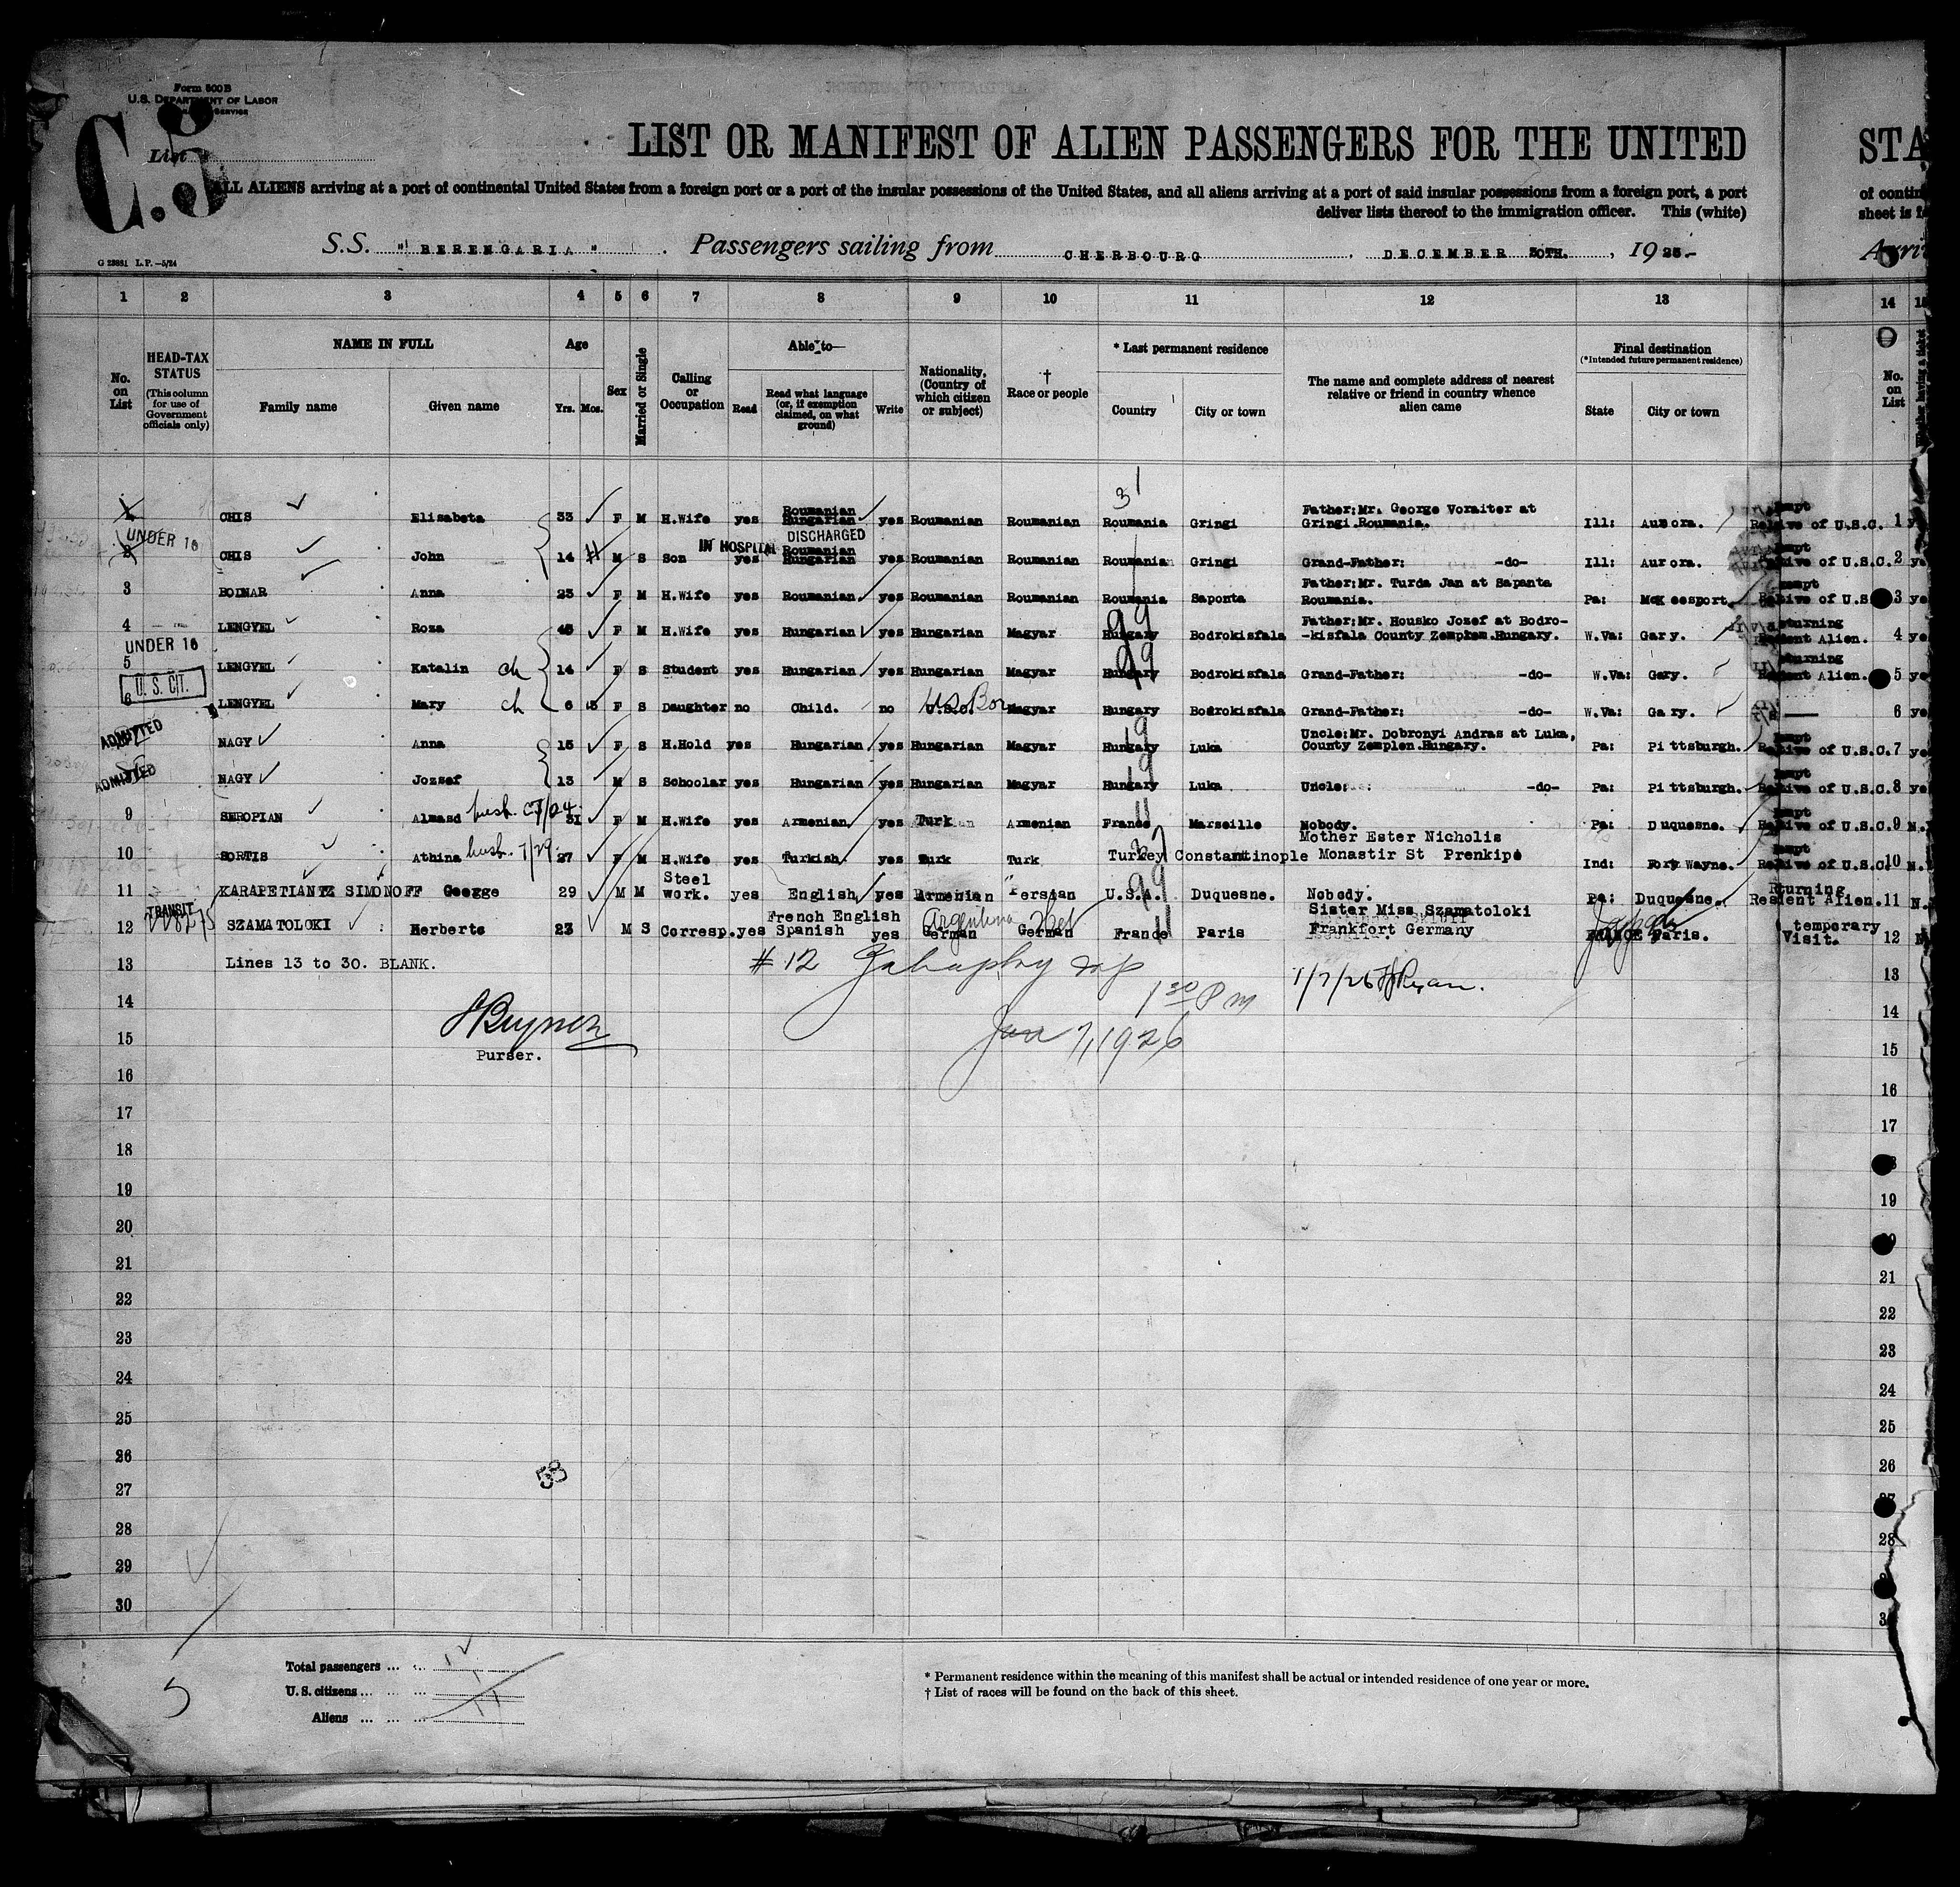 Form 500B
U.S. DEPARTMENT OF LABOR
SERVICE
C.5
List
LIST OR MANIFEST OF ALIEN PASSENGERS FOR THE UNITED STA
ALL ALIENS arriving at a port of continental United States from a foreign port or a port of the insular possessions of the United States, and all aliens arriving at a port of said insular possessions from a foreign port, a port of contin
deliver lists thereof to the immigration officer. This (white) sheet is f
S.S. "BERENGARIA". Passengers sailing from CHERBOURG, DECEMBER 30TH., 1925.-
G 23881 L.P.-5/24
1 2 3 4 5 6 7 8 9 10 11 12 13 14 15
No. on List
HEAD-TAX STATUS
(This column for use of Government officials only)
NAME IN FULL
Family name
Given name
Age
Yrs. Mos.
Sex
Married or Single
Calling or Occupation
Able to—
Read
Read what language (or, if exemption claimed, on what ground)
Write
Nationality. (Country of which citizen or subject)
† Race or people
* Last permanent residence
Country
City or town
The name and complete address of nearest relative or friend in country whence alien came
Final destination
(*Intended future permanent residence)
State
City or town
No. on List
Whether having a ticket
1 CHIS Elisabeta 33 F M H.Wife yes Roumanian Hungarian yes Roumanian Roumanian Roumania Gringi Father:Mr. George Voraiter at Gringi.Roumania. Ill: Aurora. of U.S.C. 1
UNDER 16
IN HOSPITAL DISCHARGED
2 CHIS John 14 M S Son yes Roumanian Hungarian yes Roumanian Roumanian Roumania Gringi Grand-Father: -do- Ill: Aurora. of U.S.C. 2
3 BODNAR Anna 23 F M H.Wife yes Roumanian yes Roumanian Roumanian Roumania Saponta Father:Mr. Turda Jan at Sapanta Roumania. Pa: McKeesport of U.S. 3
4 LENGYEL Roza 45 F M H.Wife yes Hungarian yes Hungarian Magyar Hungary Bodrokisfala Father:Mr. Housko Jozef at Bodro- -kisfala County Zemplen.Hungary. W.Va: Gary. Alien. 4
UNDER 16
5 LENGYEL Katalin ch 14 F S Student yes Hungarian yes Hungarian Magyar Hungary Bodrokisfala Grand-Father: -do- W.Va: Gary. Alien. 5
U.S. CIT.
6 LENGYEL Mary ch 6 F S Daughter no Child. no U.S.C. US Bor Magyar Hungary Bodrokisfala Grand-Father: -do- W.Va: Gary. 6
ADMITTED
NAGY Anna 15 F S H.Hold yes Hungarian yes Hungarian Magyar Hungary Luka Uncle:Mr. Dobronyi Andras at Luka, County Zemplen.Hungary. Pa: Pittsburgh. of U.S.C. 7
ADMITTED
NAGY Jozsef 13 M S Schoolar yes Hungarian yes Hungarian Magyar Hungary Luka Uncle: -do- Pa: Pittsburgh. of U.S.C. 8
9 SEROPIAN Almasd husb. 31 F M H.Wife yes Armenian yes Turk Armenian France Marseille Nobody. Pa: Duquesne. of U.S.C. 9
10 SORTIS Athina husb. 27 F M H.Wife yes Turkish yes Turk Turk Turkey Constantinople Mother Ester Nicholis Monastir St Prenkipe Ind: Fort Wayne. of U.S.C. 10
11 KARAPETIANTZ SIMONOFF George 29 M M Steel work. yes English yes Armenian Persian U.S.A. Duquesne. Nobody. Pa: Duquesne. Alien. 11
TRANSIT
12 SZAMATOLOKI Herberts 23 M S Corresp. yes French English Spanish yes German Argentina German France Paris Sister Miss Szamatoloki Frankfort Germany FRANCE Paris. temporary Visit. 12
13 Lines 13 to 30. BLANK. # 12 13
1/7/26 Ryan.
1 30 P m
14 14
Jan 7, 1926
15 Purser. 15
16 16
17 17
18
19 19
20
21 21
22 22
23 23
24 24
25 25
26 26
53
27
28 28
29
30
5
Total passengers ... 12
U.S. citizens ... 1
Aliens ... 11
* Permanent residence within the meaning of this manifest shall be actual or intended residence of one year or more.
† List of races will be found on the back of this sheet.